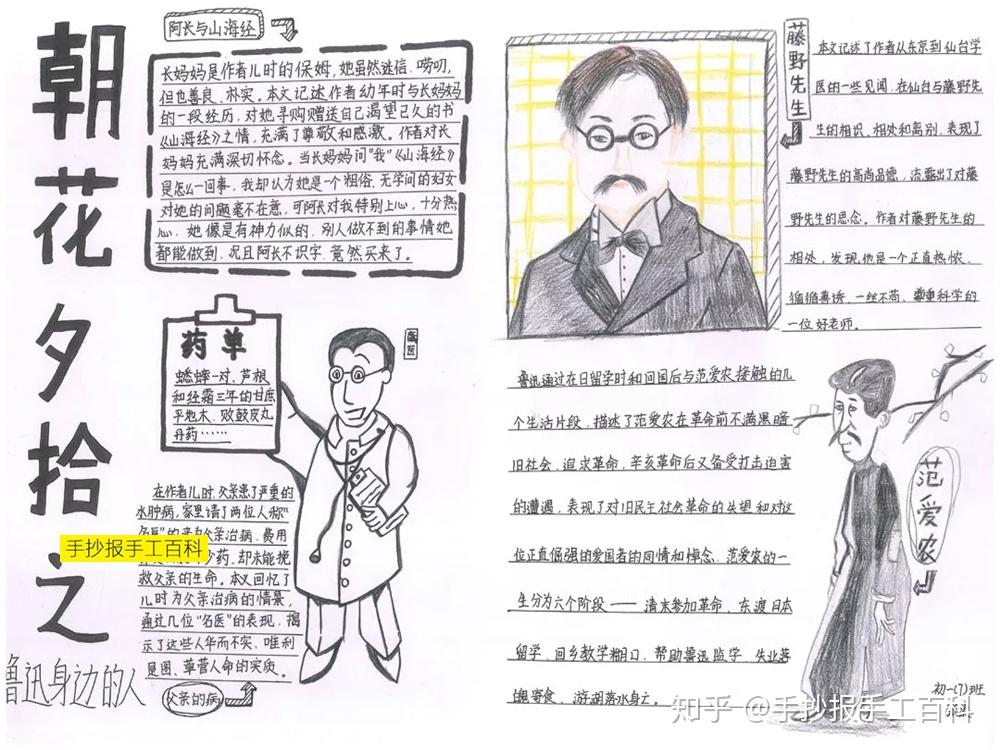 朝花夕拾之
鲁迅身边的人
阿长与山海经
长妈妈是作者儿时的保姆,她虽然迷信、唠叨,
但也善良、朴实。本文记述作者幼年时与长妈妈
的一段经历,对她寻购赠送自己渴望已久的书
《山海经》之情,充满了尊敬和感激。作者对长
妈妈充满深切怀念。当长妈妈问“我”《山海经》
是怎么一回事,我却认为她是一个粗俗、无学问的妇女
对她的问题毫不在意,可阿长对我特别上心,十分热
心,她像是有神力似的,别人做不到的事情她
都能做到,况且阿长不识字,竟然买来了。
药单
蟋蟀一对、芦根
和经霜三年的甘蔗
平地木、败鼓皮丸
丹药……
名医
在作者儿时,父亲患了严重的
水肿病,家里请了两位人称“
名医”的来为父亲治病,费用
少药,却未能挽
救父亲的生命。本文回忆了
儿时为父亲治病的情景,
通过几位“名医”的表现,揭
示了这些人华而不实、唯利
是图、草菅人命的实质。
父亲的病
手抄报手工百科
藤野先生
本文记述了作者从东京到仙台学
医的一些见闻,在仙台与藤野先
生的相识、相处和离别,表现了
藤野先生的高尚品德,流露出了对藤
野先生的思念。作者对藤野先生的
相处,发现他是一个正直热忱、
循循善诱、一丝不苟、尊重科学的
一位好老师。
鲁迅通过在日留学时和回国后与范爱农接触的几
个生活片段,描述了范爱农在革命前不满黑暗
旧社会,追求革命,辛亥革命后又备受打击迫害
的遭遇,表现了对旧民主社会革命的失望和对这
位正直倔强的爱国者的同情和悼念、范爱农的一
生分为六个阶段——清末参加革命、东渡日本
留学、回乡教学糊口、帮助鲁迅监学、失业落
魄寄食、游湖落水身亡。
范爱农
初一(7)班
知乎 @手抄报手工百科